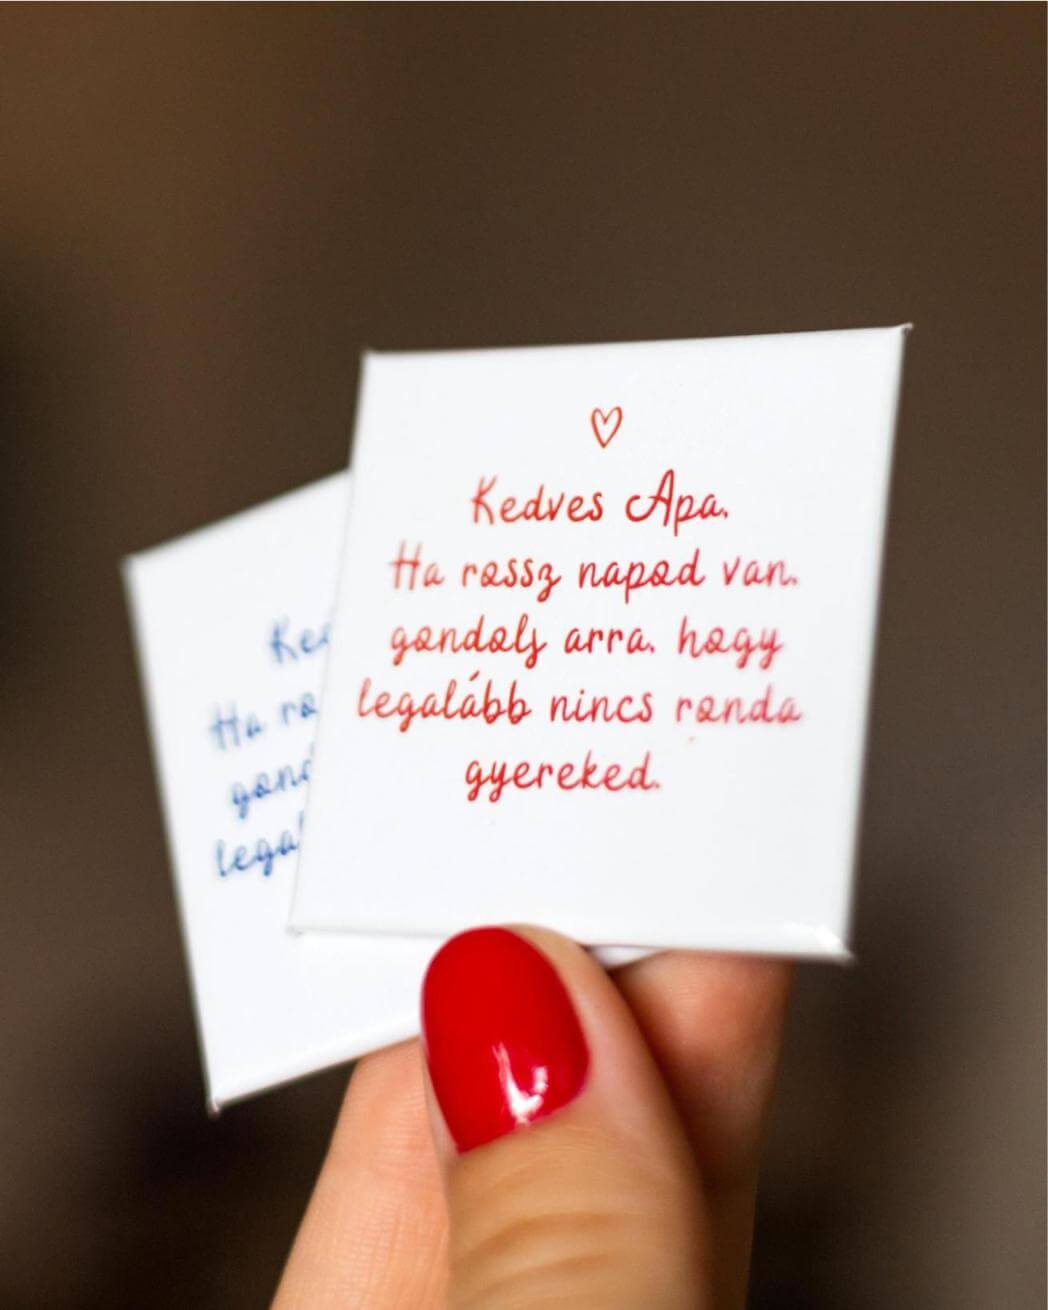 Kedves Apa,
Ha rossz napod van,
gondolj arra, hogy
legalább nincs ronda
gyereked.
Ha